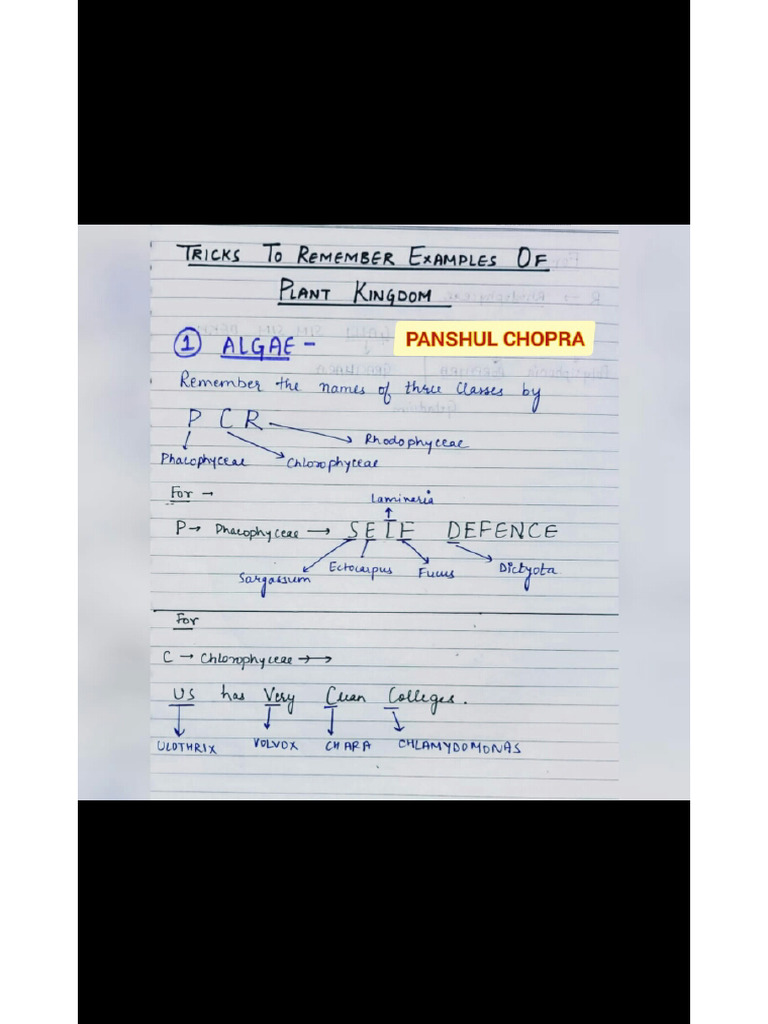 TRICKS TO REMEMBER EXAMPLES OF
PLANT KINGDOM
① ALGAE -
PANSHUL CHOPRA
Remember the names of three classes by
P C R
Rhodophyceae
Phaeophyceae Chlorophyceae
For →
Laminaria
P → Phaeophyceae → SELF DEFENCE
Sargassum Ectocarpus Fucus Dictyota
For
C → Chlorophyceae →→
US has Very Clean Colleges.
ULOTHRIX VOLVOX CHARA CHLAMYDOMONAS